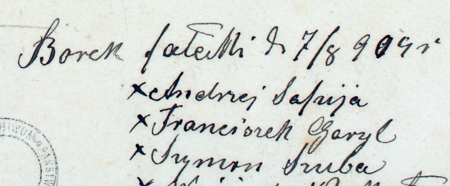 Borek fałecki d 7/8 909 r
×Andrzej Sapija
×Franciszek Gawyl
×Szymon Szuba
×